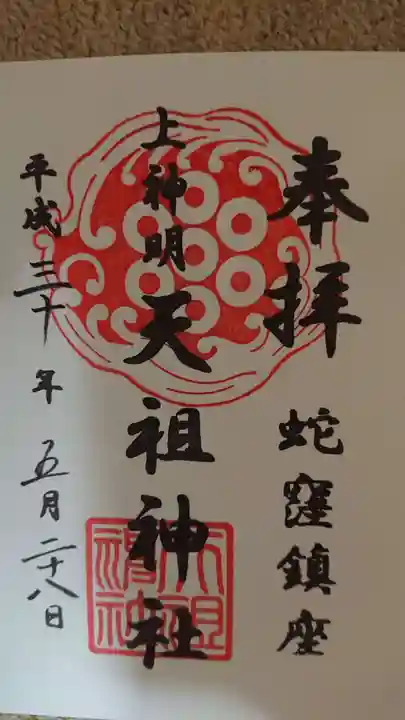 奉拝
蛇窪鎮座
上神明
天祖神社
平成三十年五月二十八日
天祖神社